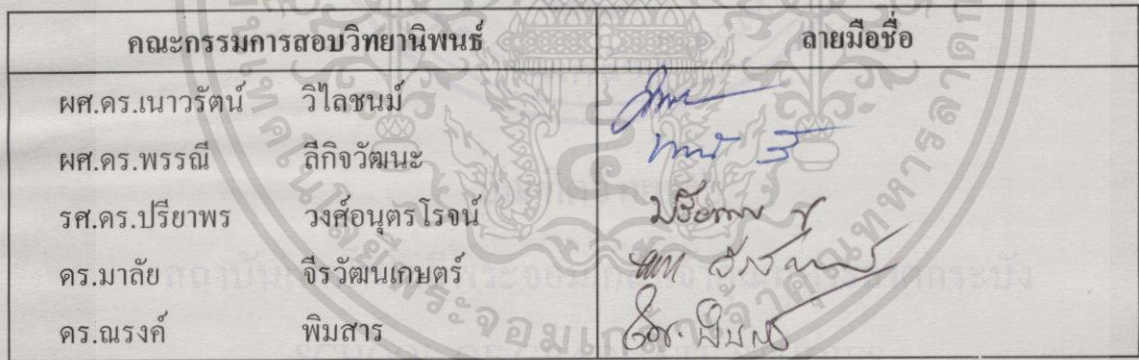 คณะกรรมการสอบวิทยานิพนธ์ ลายมือชื่อ
ผศ.ดร.เนาวรัตน์ วิไลชนม์
ผศ.ดร.พรรณี ลีกิจวัฒนะ
รศ.ดร.ปรียาพร วงศ์อนุตรโรจน์
ดร.มาลัย จีรวัฒนเกษตร์
ดร.ณรงค์ พิมสาร